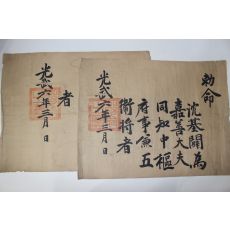 勅命
沈基關為
嘉善大夫
同知中樞
府事兼五
衛將者
光武六年三月 日
者
光武六年三月 日